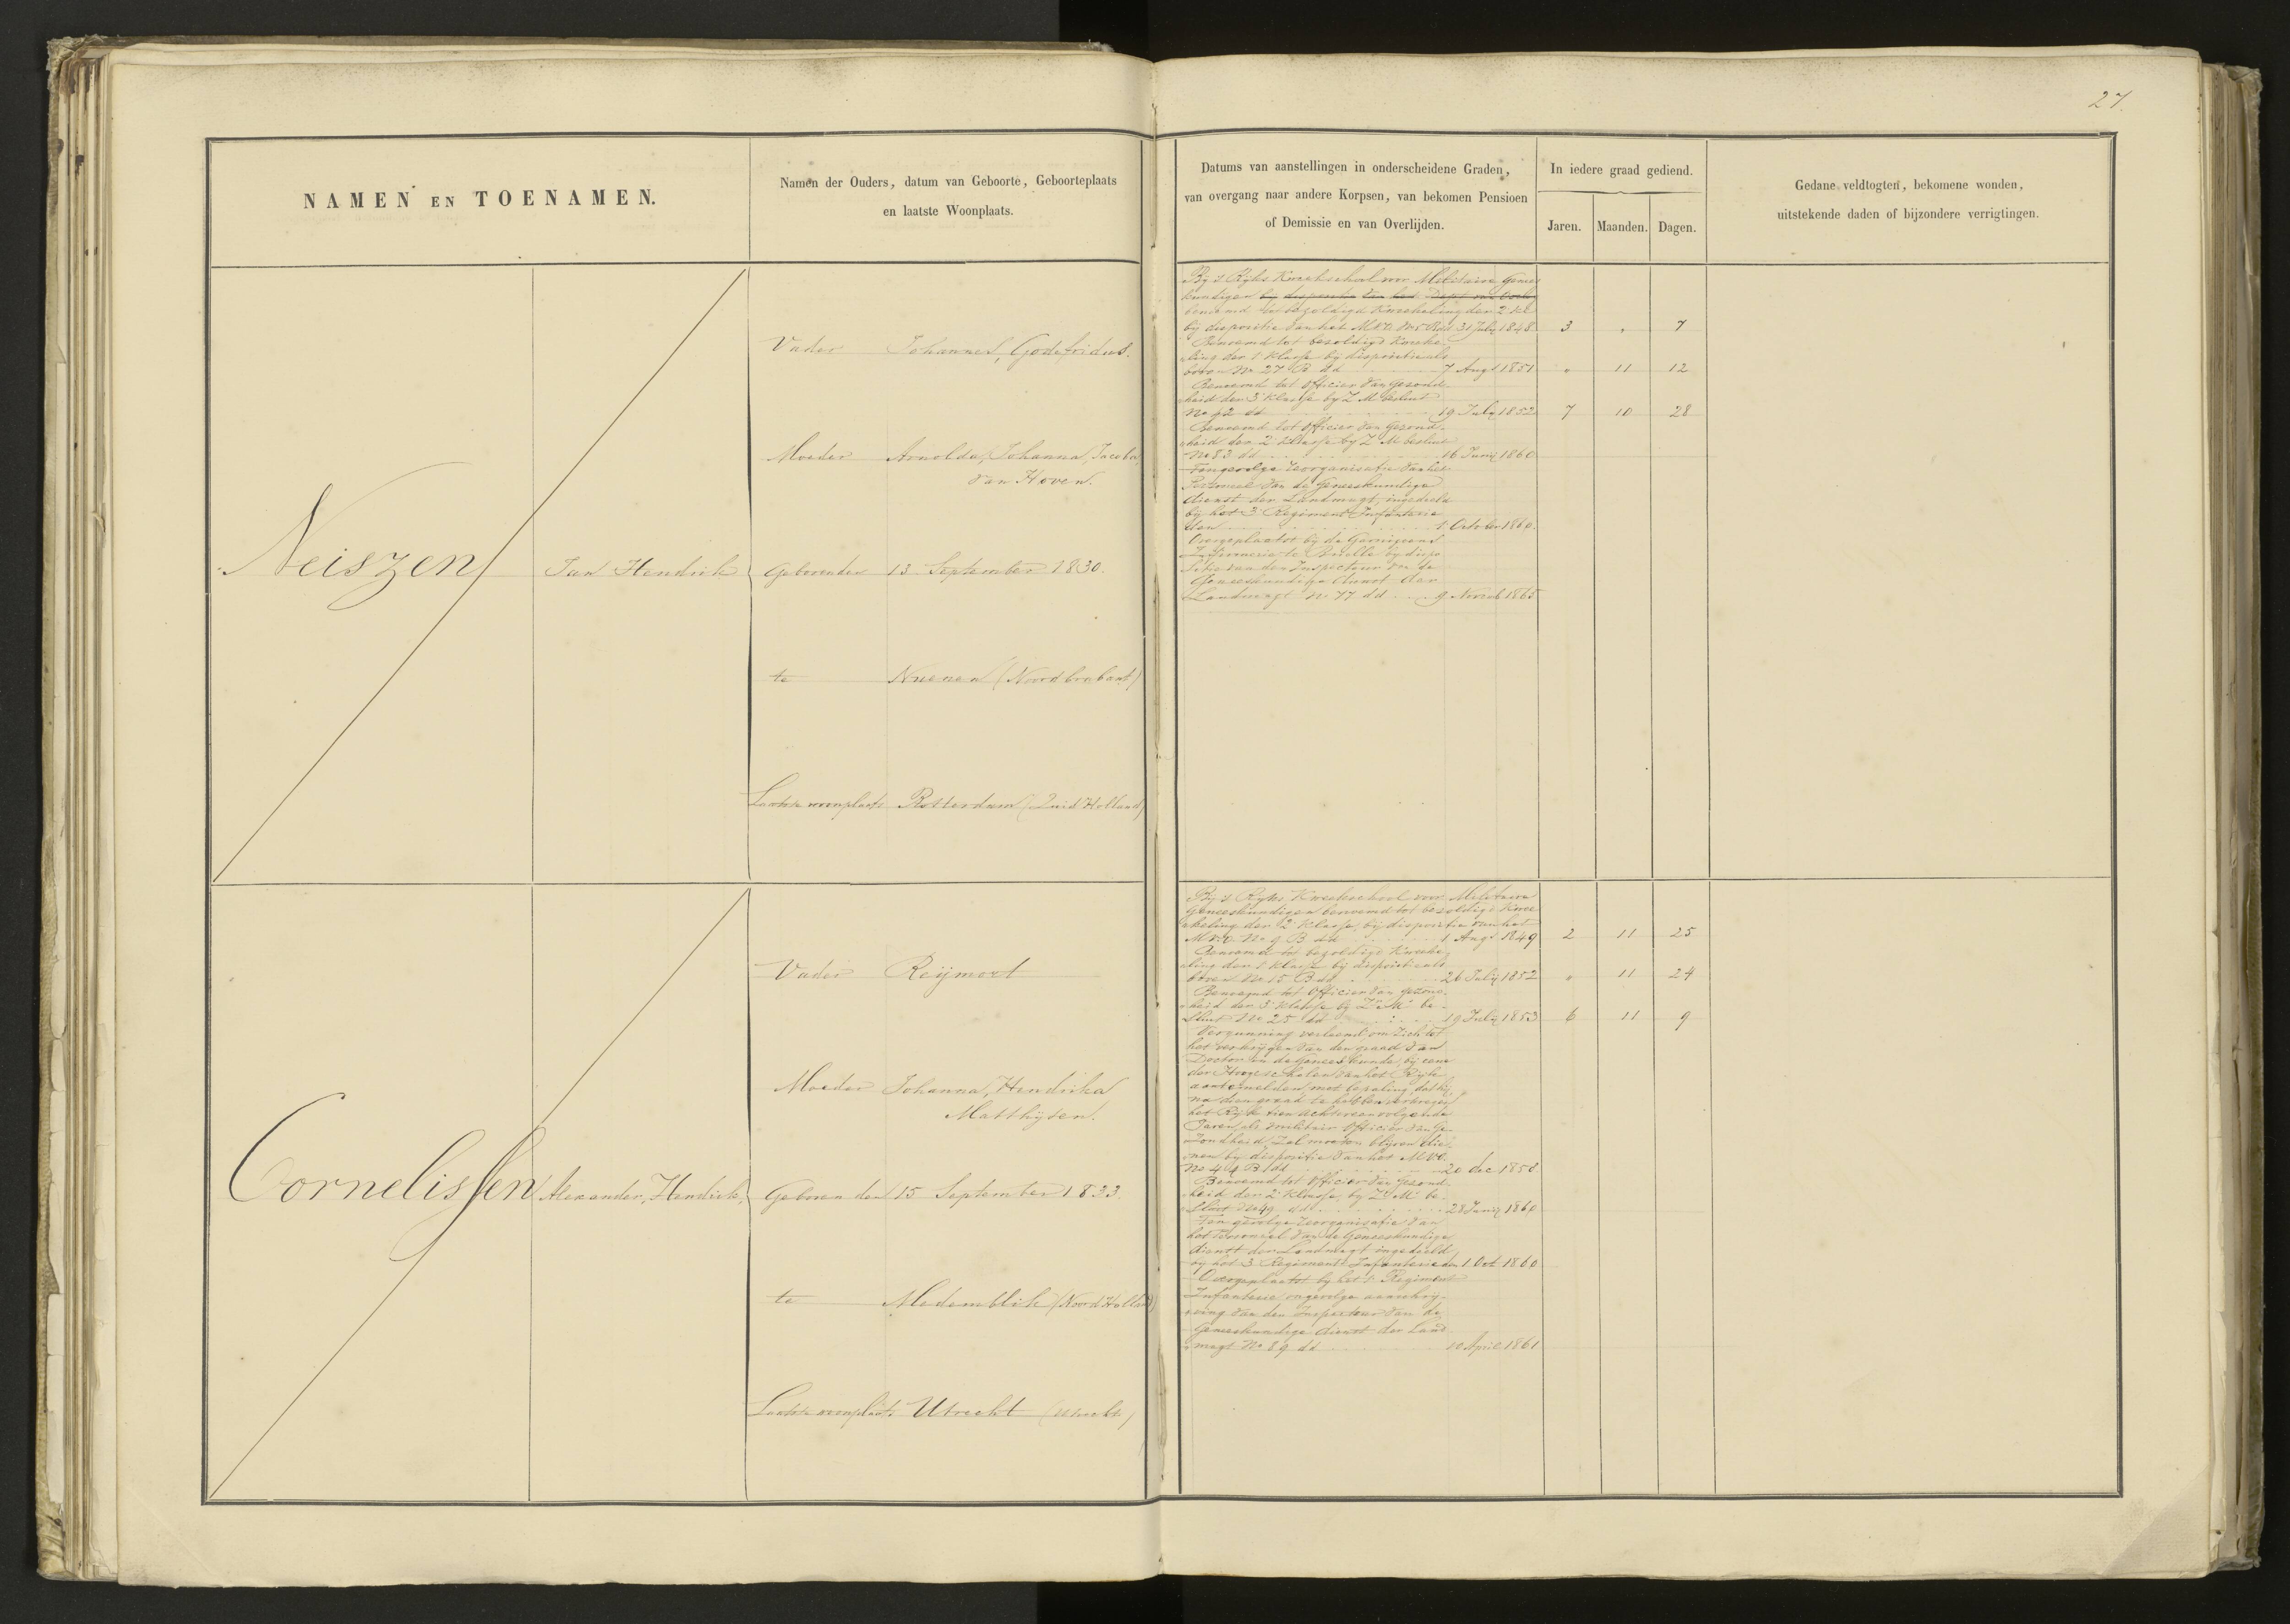 27.
NAMEN EN TOENAMEN.
Namen der Ouders, datum van Geboorte, Geboorteplaats
en laatste Woonplaats.
Datums van aanstellingen in onderscheidene Graden,
van overgang naar andere Korpsen, van bekomen Pensioen
of Demissie en van Overlijden.
In iedere graad gediend.
Jaren. Maanden. Dagen.
Gedane veldtogten, bekomene wonden,
uitstekende daden of bijzondere verrigtingen.
Neiszen
Jan Hendrik
Vader Johannes, Godefridus.
Moeder Arnolda, Johanna, Jacoba,
van Hoven.
Geboren den 13 September 1830.
te Nuenen (Noordbrabant)
Laatste woonplaats Rotterdam (Zuid Holland)
Bij 's Rijks Kweekschool voor Militaire Genees
kundigen bij dispositie van het Dept van Oorlog
benoemd tot bezoldigd Kweekeling der 2 Kl
bij dispositie van het MvO 31 July 1848 3 " 7
Benoemd tot bezoldigd Kweeke-
ling der 1 Klasse bij dispositie als
boven No 27 B dd 7 Augt 1851 " 11 12
Benoemd tot Officier van Gezond-
heid der 3e Klasse by Z M besluit
No 42 dd 19 July 1852 7 10 28
Benoemd tot Officier van Gezond-
heid der 2e Klasse by Z M besluit
No 83 dd 16 Junij 1860
Tengevolge reorganisatie van het
Personeel van de Geneeskundige
dienst der Landmagt, ingedeeld
bij het 3e Regiment Infanterie
den 1 October 1860.
Overgeplaatst bij de Garnizoens
Infirmerie te Brielle bij dispo
sitie van den Inspecteur van de
Geneeskundige dienst der
Landmagt No 77 dd 9 Novemb 1865
Cornelissen
Alexander, Hendrik,
Vader Reijmert
Moeder Johanna, Hendrika
Matthijsen.
Geboren den 15 September 1833.
te Medemblik (Noord Holland)
Laatste woonplaats Utrecht (Utrecht)
Bij 's Rijks Kweekschool voor Militaire
Geneeskundigen benoemd tot bezoldigd Kwee
keling der 2e Klasse, bij dispositie van het
MvO No 9 B dd 1 Augt 1849 2 11 25
Benoemd tot bezoldigd Kweeke-
ling der 1 Klasse bij dispositie als
boven No 15 B dd 26 Julij 1852 " 11 24
Benoemd tot Officier van Gezond-
heid der 3e Klasse by Zr Mt be-
sluit No 25 dd 19 Julij 1853 6 11 9
Vergunning verleend om zich tot
het verkrijgen van den graad van
Doctor in de Geneeskunde, bij eene
der Hoogescholen van het Rijk
aantemelden, met bepaling, dat hij
na dien graad te hebben verkregen
het Rijk tien achtereenvolgende
Jaren, als militair Officier van Ge-
zondheid, zal moeten blijven die-
nen bij dispositie van het MvO.
No 44 B dd 20 dec 1858.
Benoemd tot Officier van Gezond-
heid der 2e Klasse, by Zr Mt be-
sluit No 49 dd 28 Junij 1860
Ten gevolge reorganisatie van
het Personeel van de Geneeskundige
dienst der Landmagt ingedeeld
bij het 3e Regiment Infanterie den 1 Oct 1860
Overgeplaatst bij het 1e Regiment
Infanterie ingevolge aanschrij-
ving van den Inspecteur van de
Geneeskundige dienst der Land
magt No 89 dd 10 April 1861